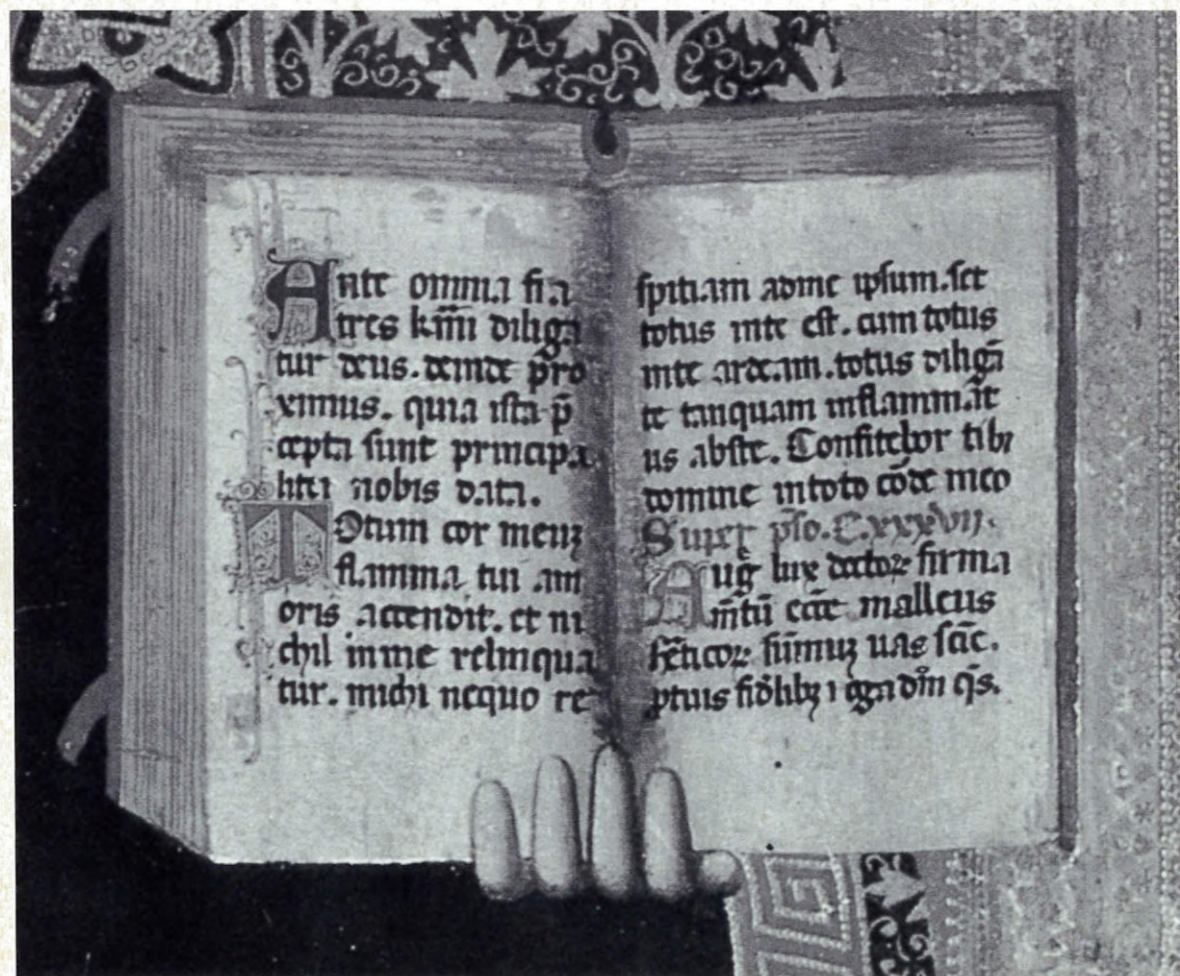 Ante omnia fra
tres k̅m̅i diliga
tur deus. deinde pro
ximus. quia ista p̄
cepta sunt principa
liter nobis data.
Totum cor meuꝫ
flamma tui am
oris accendit. et ni
chil in me relinqua
tur. michi nequo re
spitiam adme ipsum. set
totus inte est. cum totus
inte ardeam. totus diligā
te tanquam inflammāt
us abste. Confitebor tibi
domine intoto cōde meo
Super pso. C.xxxvii.
Aug̅ lux doctoꝝ firma
m̅tū ecc̅e malleus
he̅ticoꝝ su̅muꝫ uas sc̅ie.